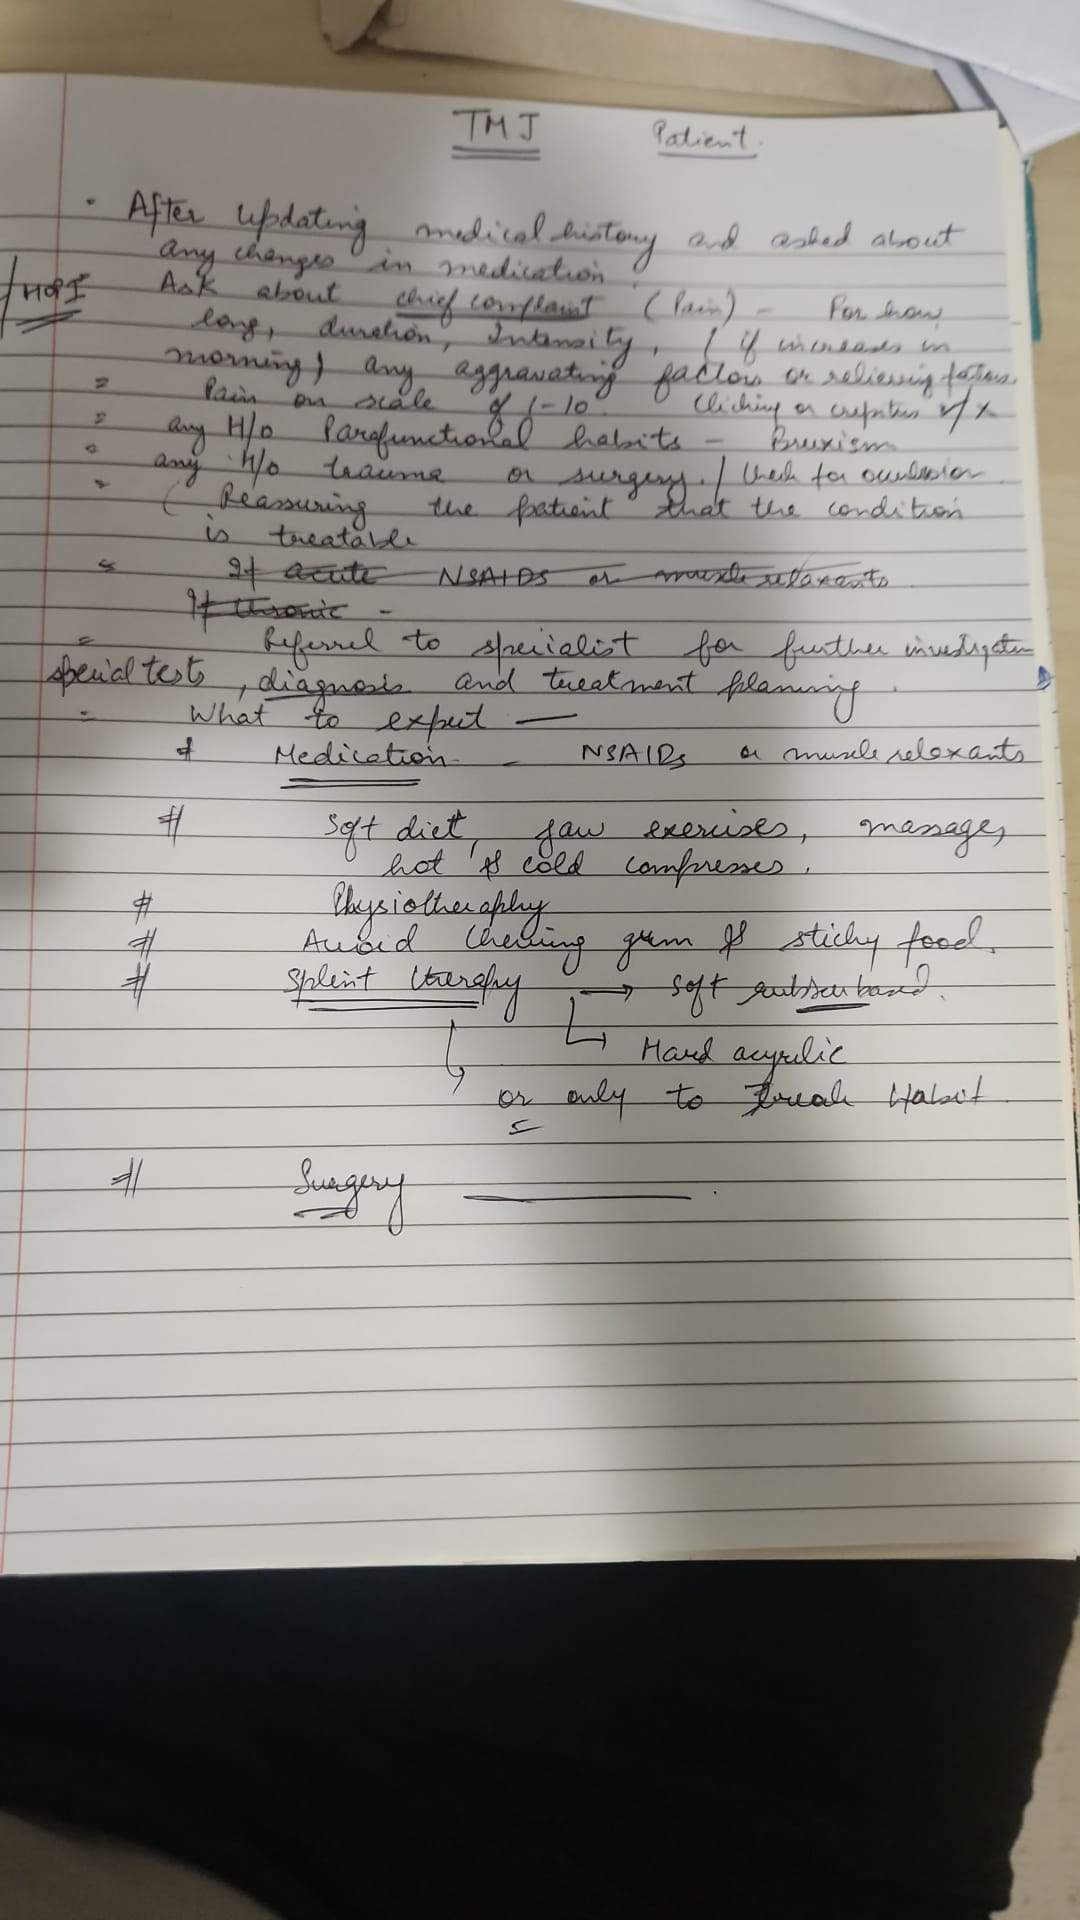 TMJ Patient.
After Updating medical history and asked about
any changes in medication.
HOPI Ask about chief complaint (Pain) - For how
long, duration, Intensity, ( if increases in
morning) any aggravating factors or relieving factors.
Pain on scale of 1-10. Cliching or crepitus
any H/o Parafunctional habits - Bruxism
any H/o trauma or surgery. / Check for occulusion
( Reassuring the patient that the condition
is treatable
If acute NSAIDS or muscle relaxants
If chronic -
Referrel to specialist for further investigation
special tests, diagnosis and treatment planning.
What to expect —
# Medication - NSAIDs or muscle relaxants
# Soft diet, jaw exercises, massage,
hot & cold compresses.
# Physiotheraphy
# Avoid chewing gum & sticky food.
# Splint therapy → Soft rubber based.
↳ Hard acyrlic
↳ or only to break Habit
# Surgery ———.